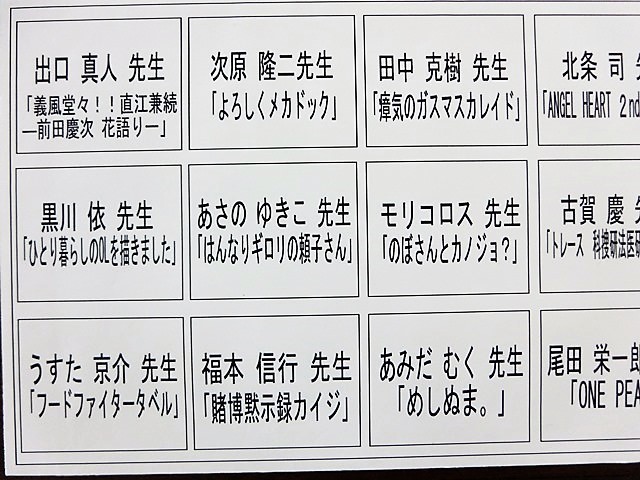 出口 真人 先生
「義風堂々！！直江兼続
―前田慶次 花語り―」
次原 隆二先生
「よろしくメカドック」
田中 克樹 先生
「瘴気のガスマスカレイド」
北条 司
「ANGEL HEART 2nd
黒川 依 先生
「ひとり暮らしのOLを描きました」
あさの ゆきこ 先生
「はんなりギロリの頼子さん」
モリコロス 先生
「のぼさんとカノジョ？」
古賀 慶
「トレース 科捜研法医研
うすた 京介 先生
「フードファイタータベル」
福本 信行 先生
「賭博黙示録カイジ」
あみだ むく 先生
「めしぬま。」
尾田 栄一郎
「ONE PEA